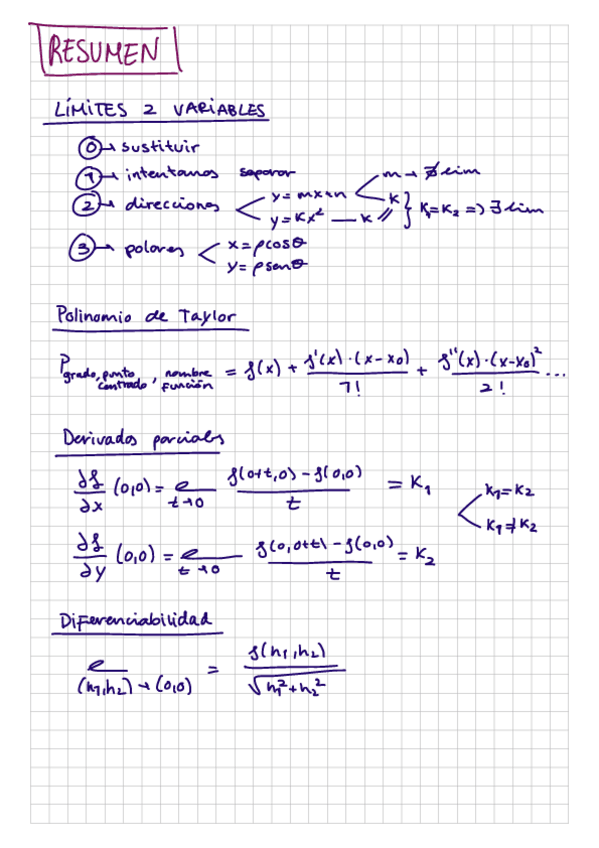 RESUMEN
LÍMITES 2 VARIABLES
0 → sustituir
1 → intentamos separar
2 → direcciones < y = mx+n < m → ∄ lim
k
y = Kx² — k // } K₁=K₂ => ∃ lim
3 → polares < x = ρcosθ
y = ρsenθ
Polinomio de Taylor
P grado, punto centrado, nombre función = f(x) + f'(x)·(x-x₀) / 1! + f''(x)·(x-x₀)² / 2! ...
Derivadas parciales
∂f/∂x (0,0) = l t→0 f(0+t,0) - f(0,0) / t = K₁
< K₁=K₂
K₁≠K₂
∂f/∂y (0,0) = l t→0 f(0,0+t) - f(0,0) / t = K₂
Diferenciabilidad
l (h₁,h₂) → (0,0) = f(h₁,h₂) / √h₁²+h₂²